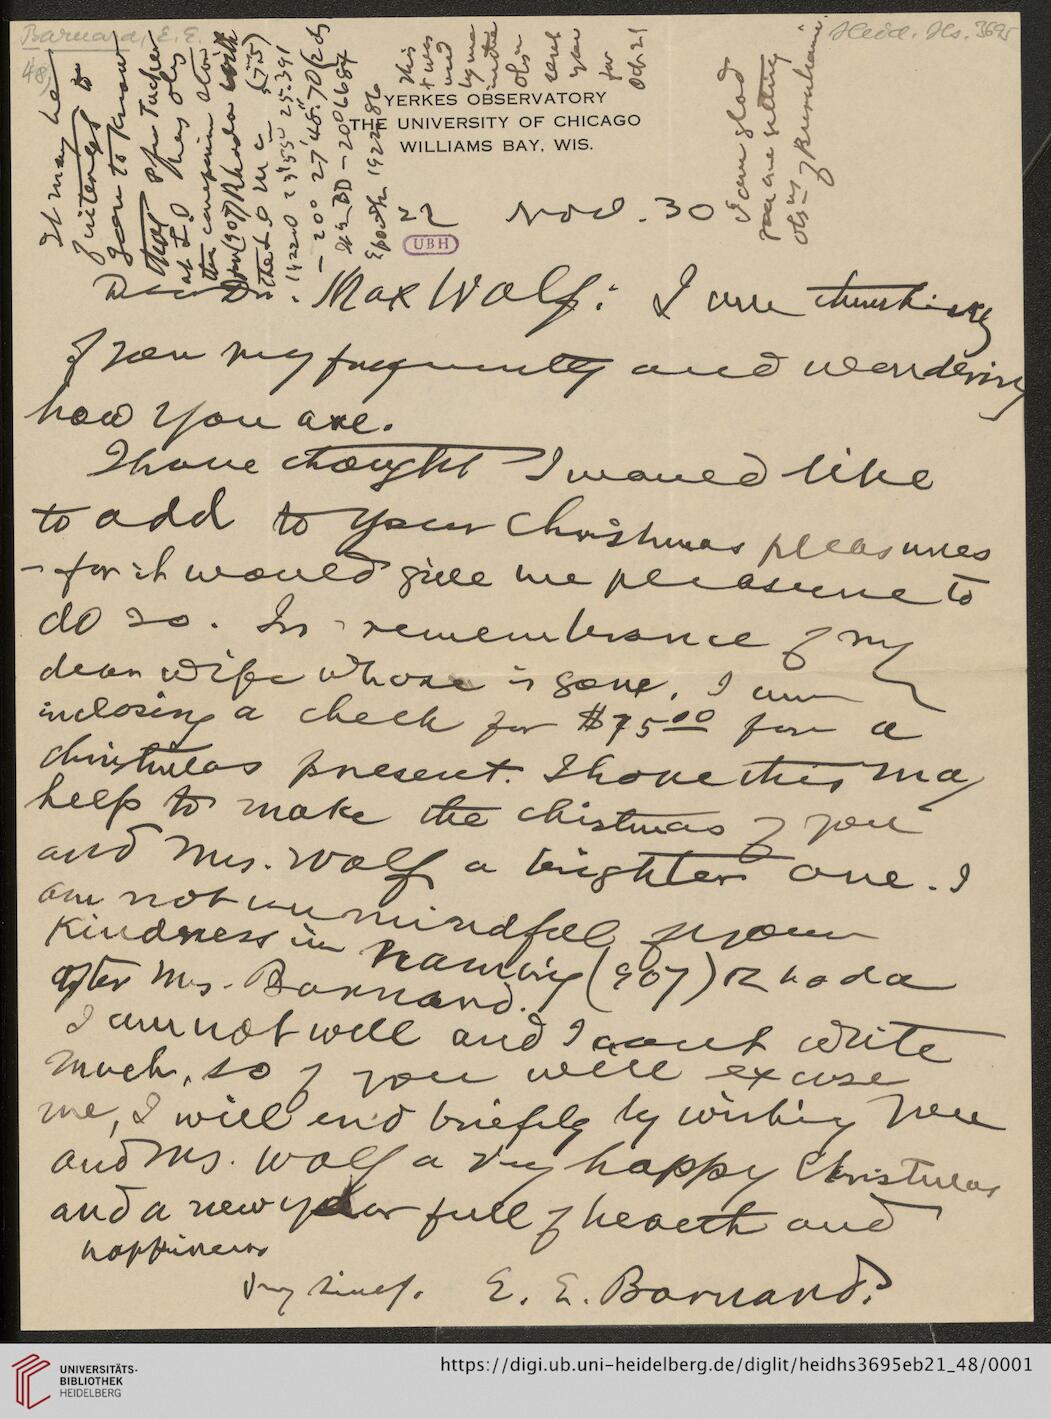 Barnard, E. E.
48,
Heid. Hs. 3695
YERKES OBSERVATORY
THE UNIVERSITY OF CHICAGO
WILLIAMS BAY, WIS.
22 Nov. 30
UBH
Dear Dr. Max Wolf: I am thinking
of you very frequently and wondering
how you are.
I have thought I would like
to add to your Christmas pleasures
- for it would give me pleasure to
do so. In remembrance of my
dear wife who is gone, I am
inclosing a check for $75.00 for a
Christmas present. I hope this may
help to make the Christmas of you
and Mrs. Wolf a brighter one. I
am not unmindful of your
Kindness in naming (907) Rhoda
after Mrs. Barnard.
I am not well and I cant write
much, so if you will excuse
me, I will end briefly by wishing you
and Mrs. Wolf a very happy Christmas
and a new year full of health and
happiness
E. E. Barnard.
It may be
of interest to
you to know
that
(907) Rhoda with
this
was
used
by me
in the
obs
sent
you
for
Oct 21
I am glad
you are getting
obs of
UNIVERSITÄTS-
BIBLIOTHEK
HEIDELBERG
https://digi.ub.uni-heidelberg.de/diglit/heidhs3695eb21_48/0001